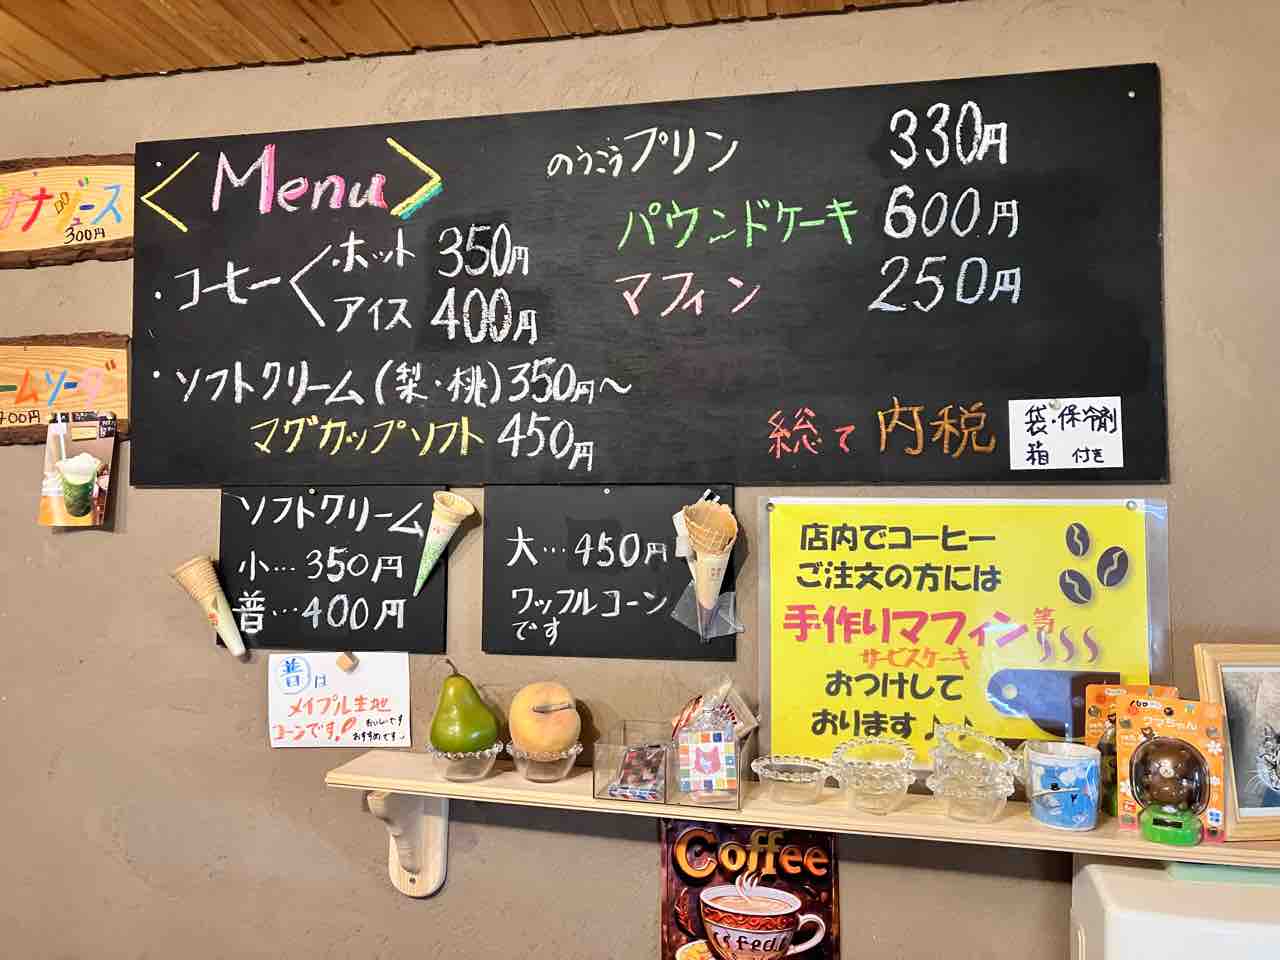 ナナジュース
300円
ームソーダ
700円
<Menu>
・コーヒー
ホット 350円
アイス 400円
・ソフトクリーム(梨・桃)350円~
マグカップソフト 450円
のうこうプリン 330円
パウンドケーキ 600円
マフィン 250円
総て 内税
袋・保冷剤
箱 付き
ソフトクリーム
小…350円
普…400円
大…450円
ワッフルコーン
です
普は
メイプル生地
コーンです!
おいしいです
おすすめです
店内でコーヒー
ご注文の方には
手作りマフィン等
サービスケーキ
おつけして
おります♪♪
Coffee